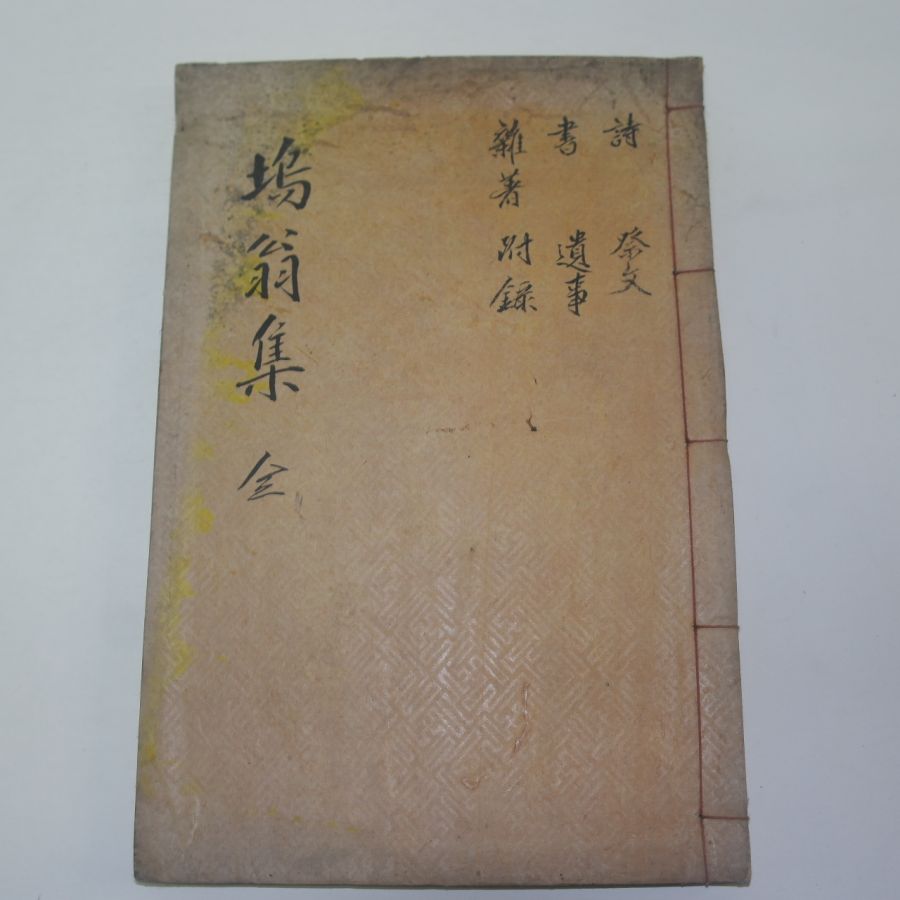 詩 祭文
書 遺事
雜著 附錄
塢翁集 全